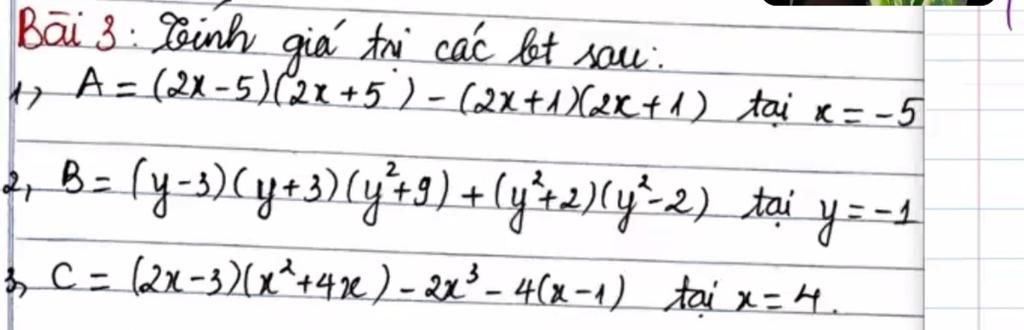 Bài 3: Tính giá trị các bt sau:
1, A = (2x-5)(2x+5) - (2x+1)(2x+1) tại x = -5
2, B = (y-3)(y+3)(y²+9) + (y²+2)(y²-2) tại y = -1
3, C = (2x-3)(x²+4x) - 2x³ - 4(x-1) tại x = 4.